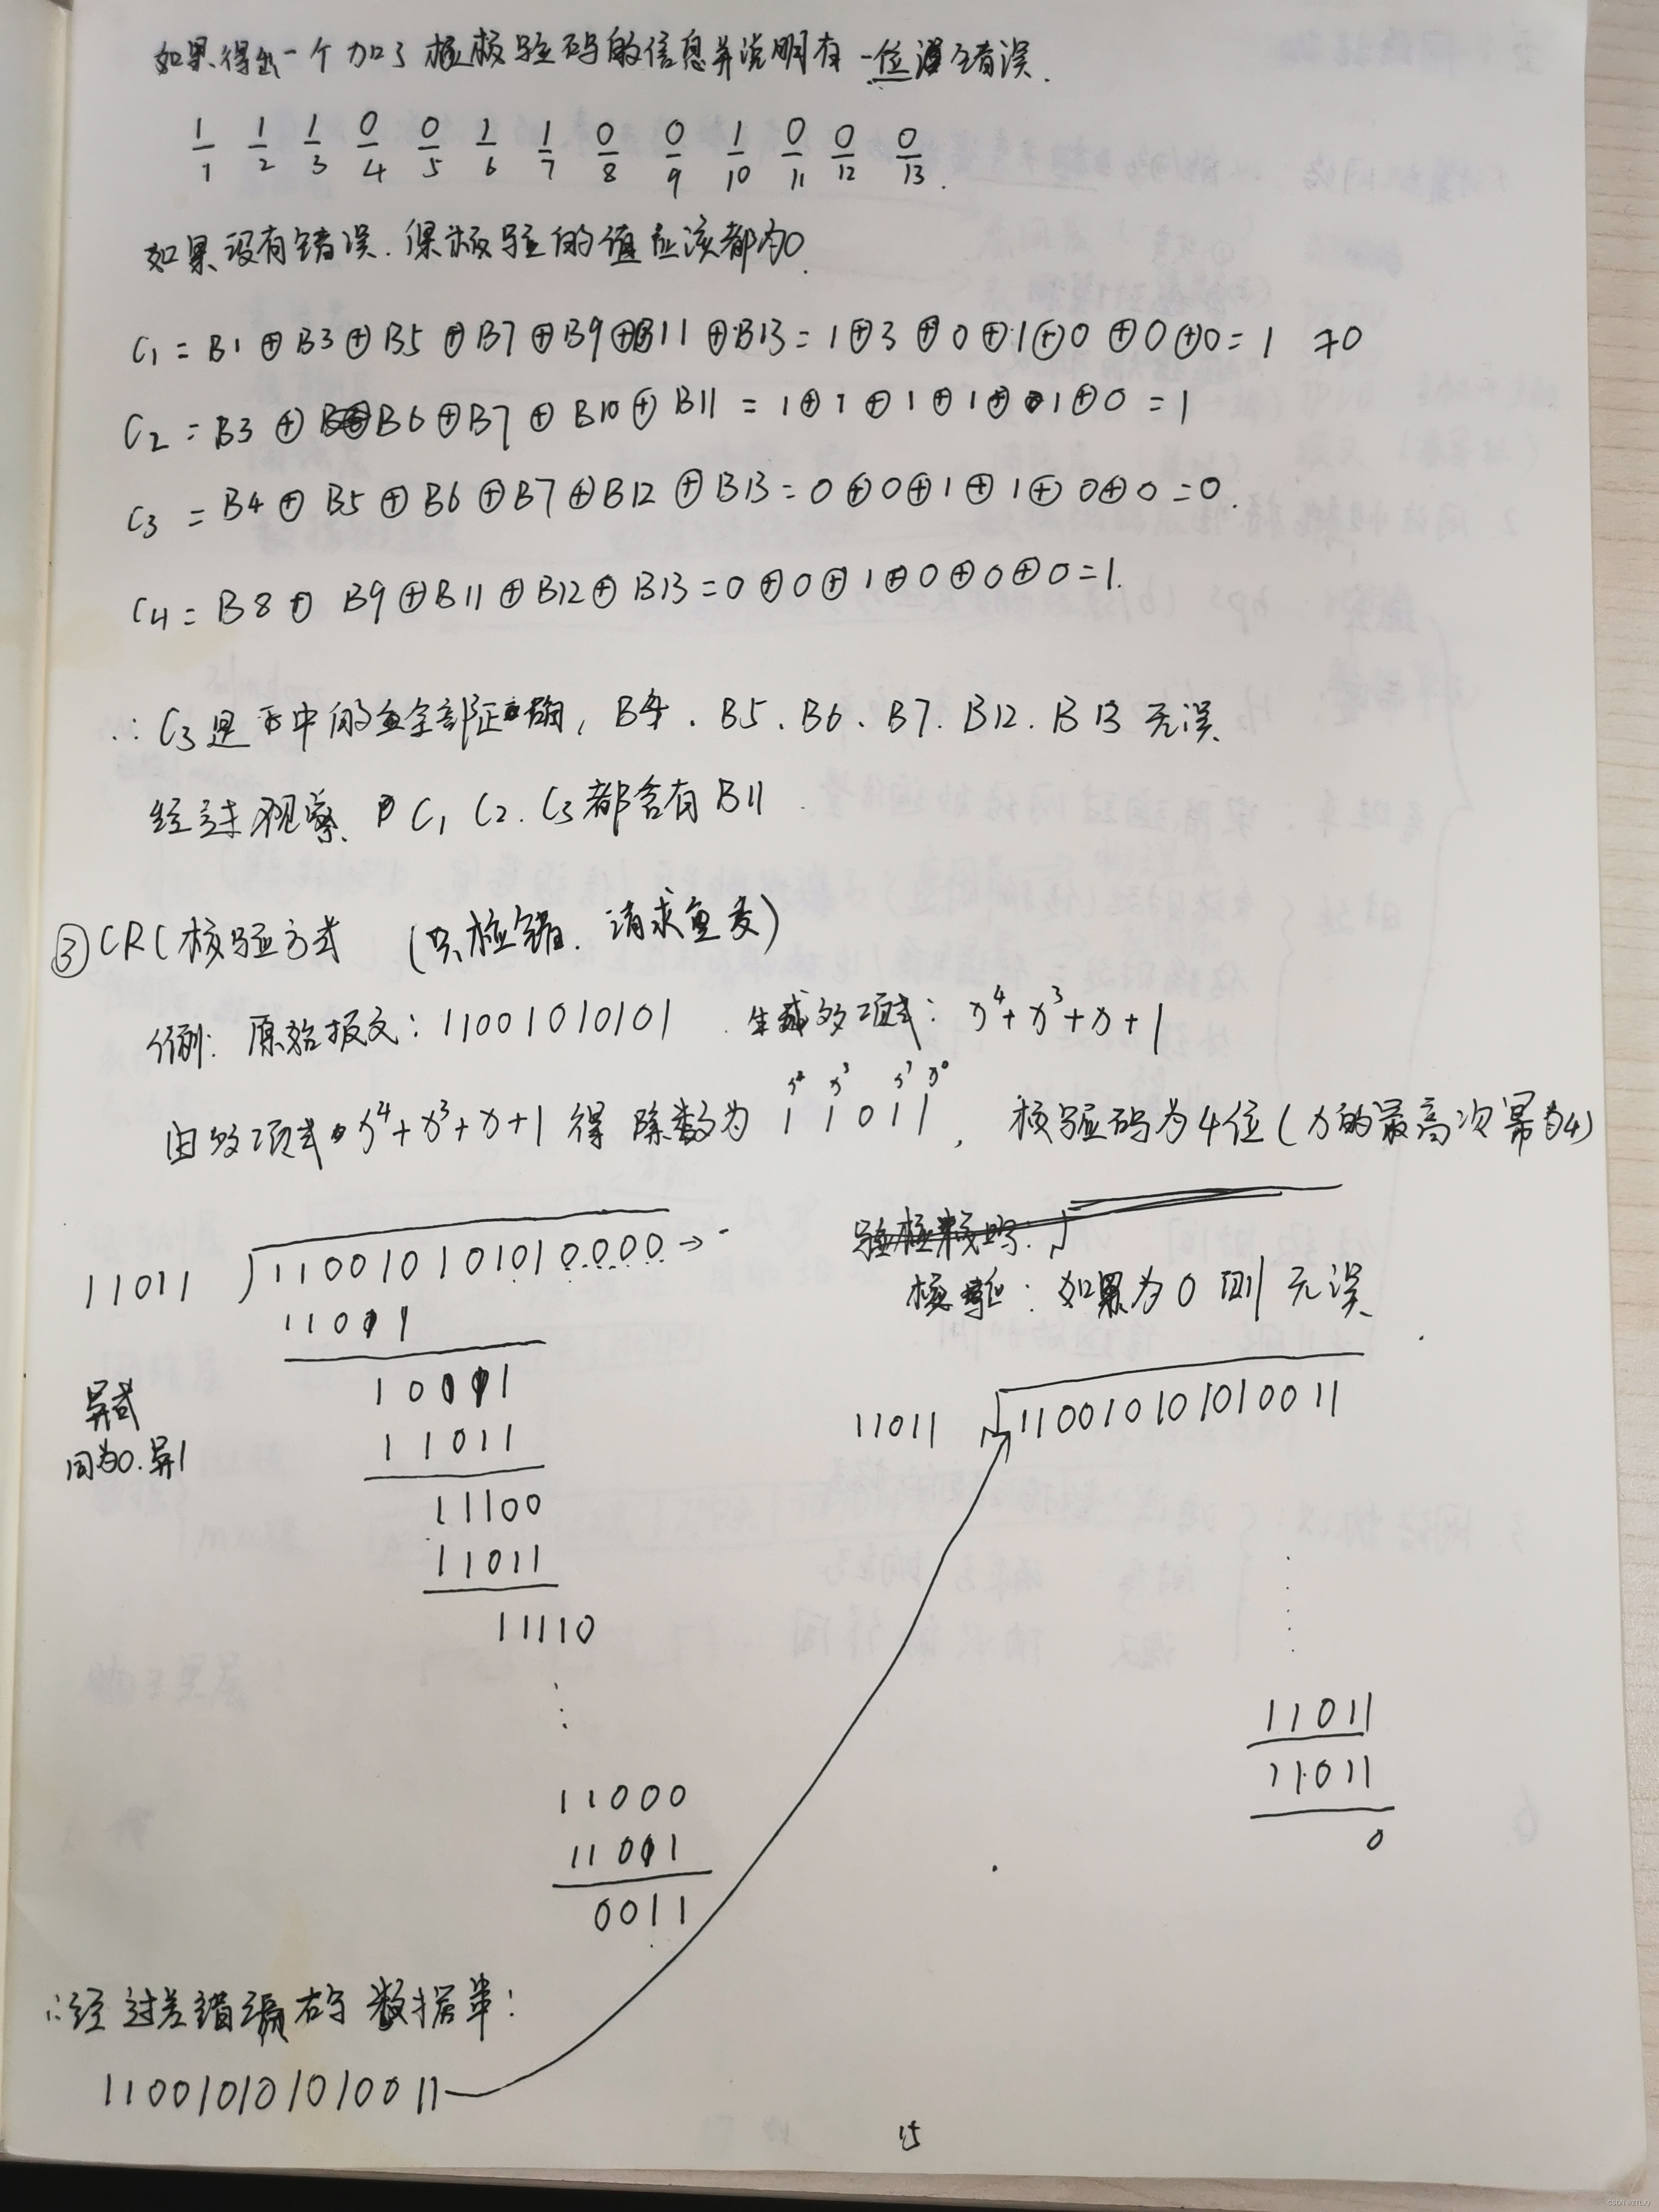 如果得出一个加了校验码的信息并说明有一位错误.
1 1 1 0 0 1 1 0 0 1 0 0 0
1 2 3 4 5 6 7 8 9 10 11 12 13.
如果没有错误.保校验的值应该都为0.
C1 = B1 ⊕ B3 ⊕ B5 ⊕ B7 ⊕ B9 ⊕ B11 ⊕ B13 = 1 ⊕ 3 ⊕ 0 ⊕ 1 ⊕ 0 ⊕ 0 ⊕ 0 = 1 ≠0
C2 = B3 ⊕ B6 ⊕ B7 ⊕ B10 ⊕ B11 = 1 ⊕ 1 ⊕ 1 ⊕ 1 ⊕ 1 ⊕ 0 = 1
C3 = B4 ⊕ B5 ⊕ B6 ⊕ B7 ⊕ B12 ⊕ B13 = 0 ⊕ 0 ⊕ 1 ⊕ 1 ⊕ 0 ⊕ 0 = 0.
C4 = B8 ⊕ B9 ⊕ B11 ⊕ B12 ⊕ B13 = 0 ⊕ 0 ⊕ 1 ⊕ 0 ⊕ 0 ⊕ 0 = 1.
∴ C3是中的全部正确, B4、B5、B6、B7、B12、B13 无误.
经过观察, C1 C2. C3都含有B11.
③ CRC核验方式 (只检错. 请求重发)
例: 原始报文: 11001010101 . 生成多项式: x⁴+x³+x+1
x⁴ x³ x¹ x⁰
由多项式 x⁴+x³+x+1 得 除数为 1 1 0 1 1 , 核验码为4位 (x的最高次幂为4)
11011 110010101010000 →
11011
10011
异或
同为0.异1
11011
11100
11011
11110
⋮
11000
11011
0011
核验: 如果为0则无误
11011 110010101010011
⋮
11011
11011
0
∴经过差错编码数据串:
110010101010011
15